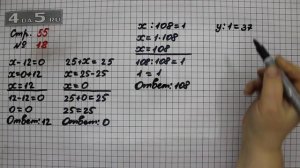 4DA5.RU
Стр. 55
№ 18
x-12=0
x=0+12
x=12
12-12=0
0=0
Ответ: 12
25+x=25
x=25-25
x=0
25+0=25
25=25
Ответ: 0
x:108=1
x=1·108
x=108
108:108=1
1=1
Ответ: 108
y:1=37